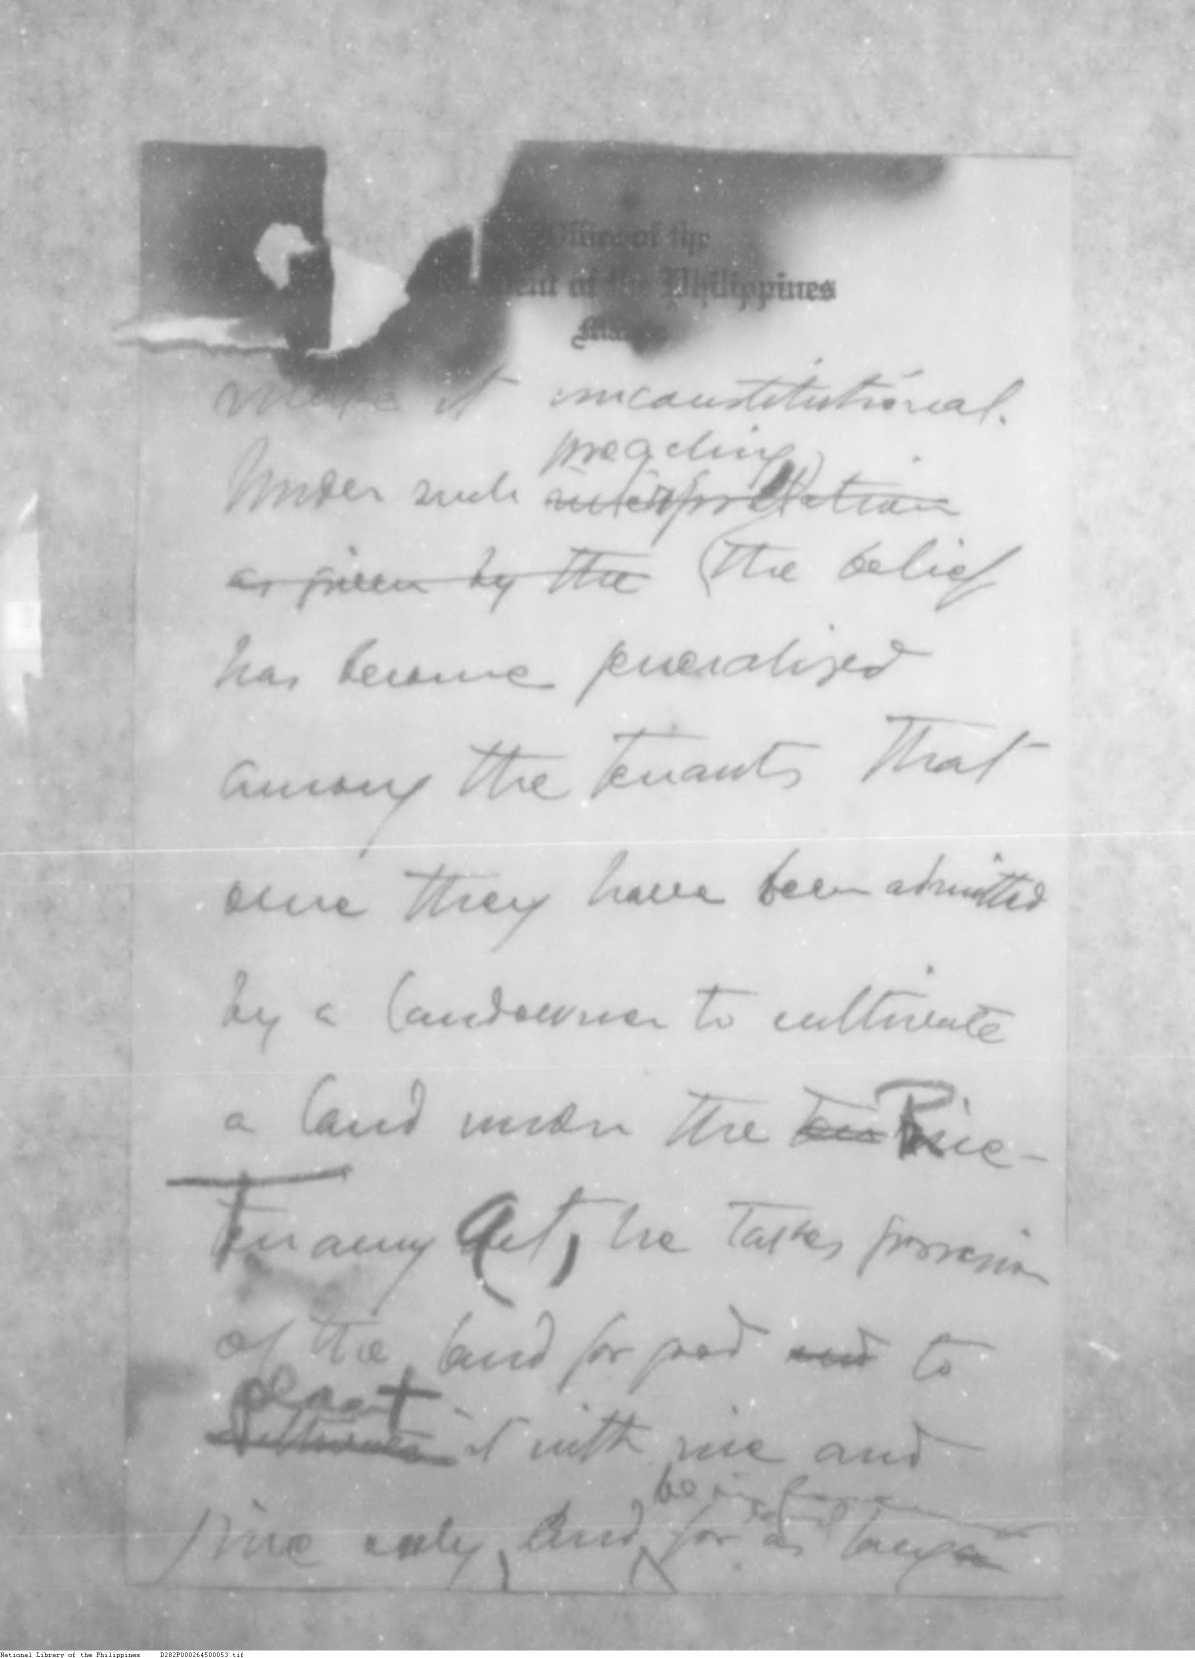 Office of the
President of the Philippines
Manila
make it unconstitutional.
preaching
Under such interpretation
as given by the (the belief
has become generalized
among the tenants that
once they have been admitted
by a landowner to cultivate
a land under the ten Rice-
Tenancy Act, he takes possession
of the land for good and to
plant
cultivate it with rice and
rice only, and, for as long as
being
National Library of the Philippines D282P000264500053.tif